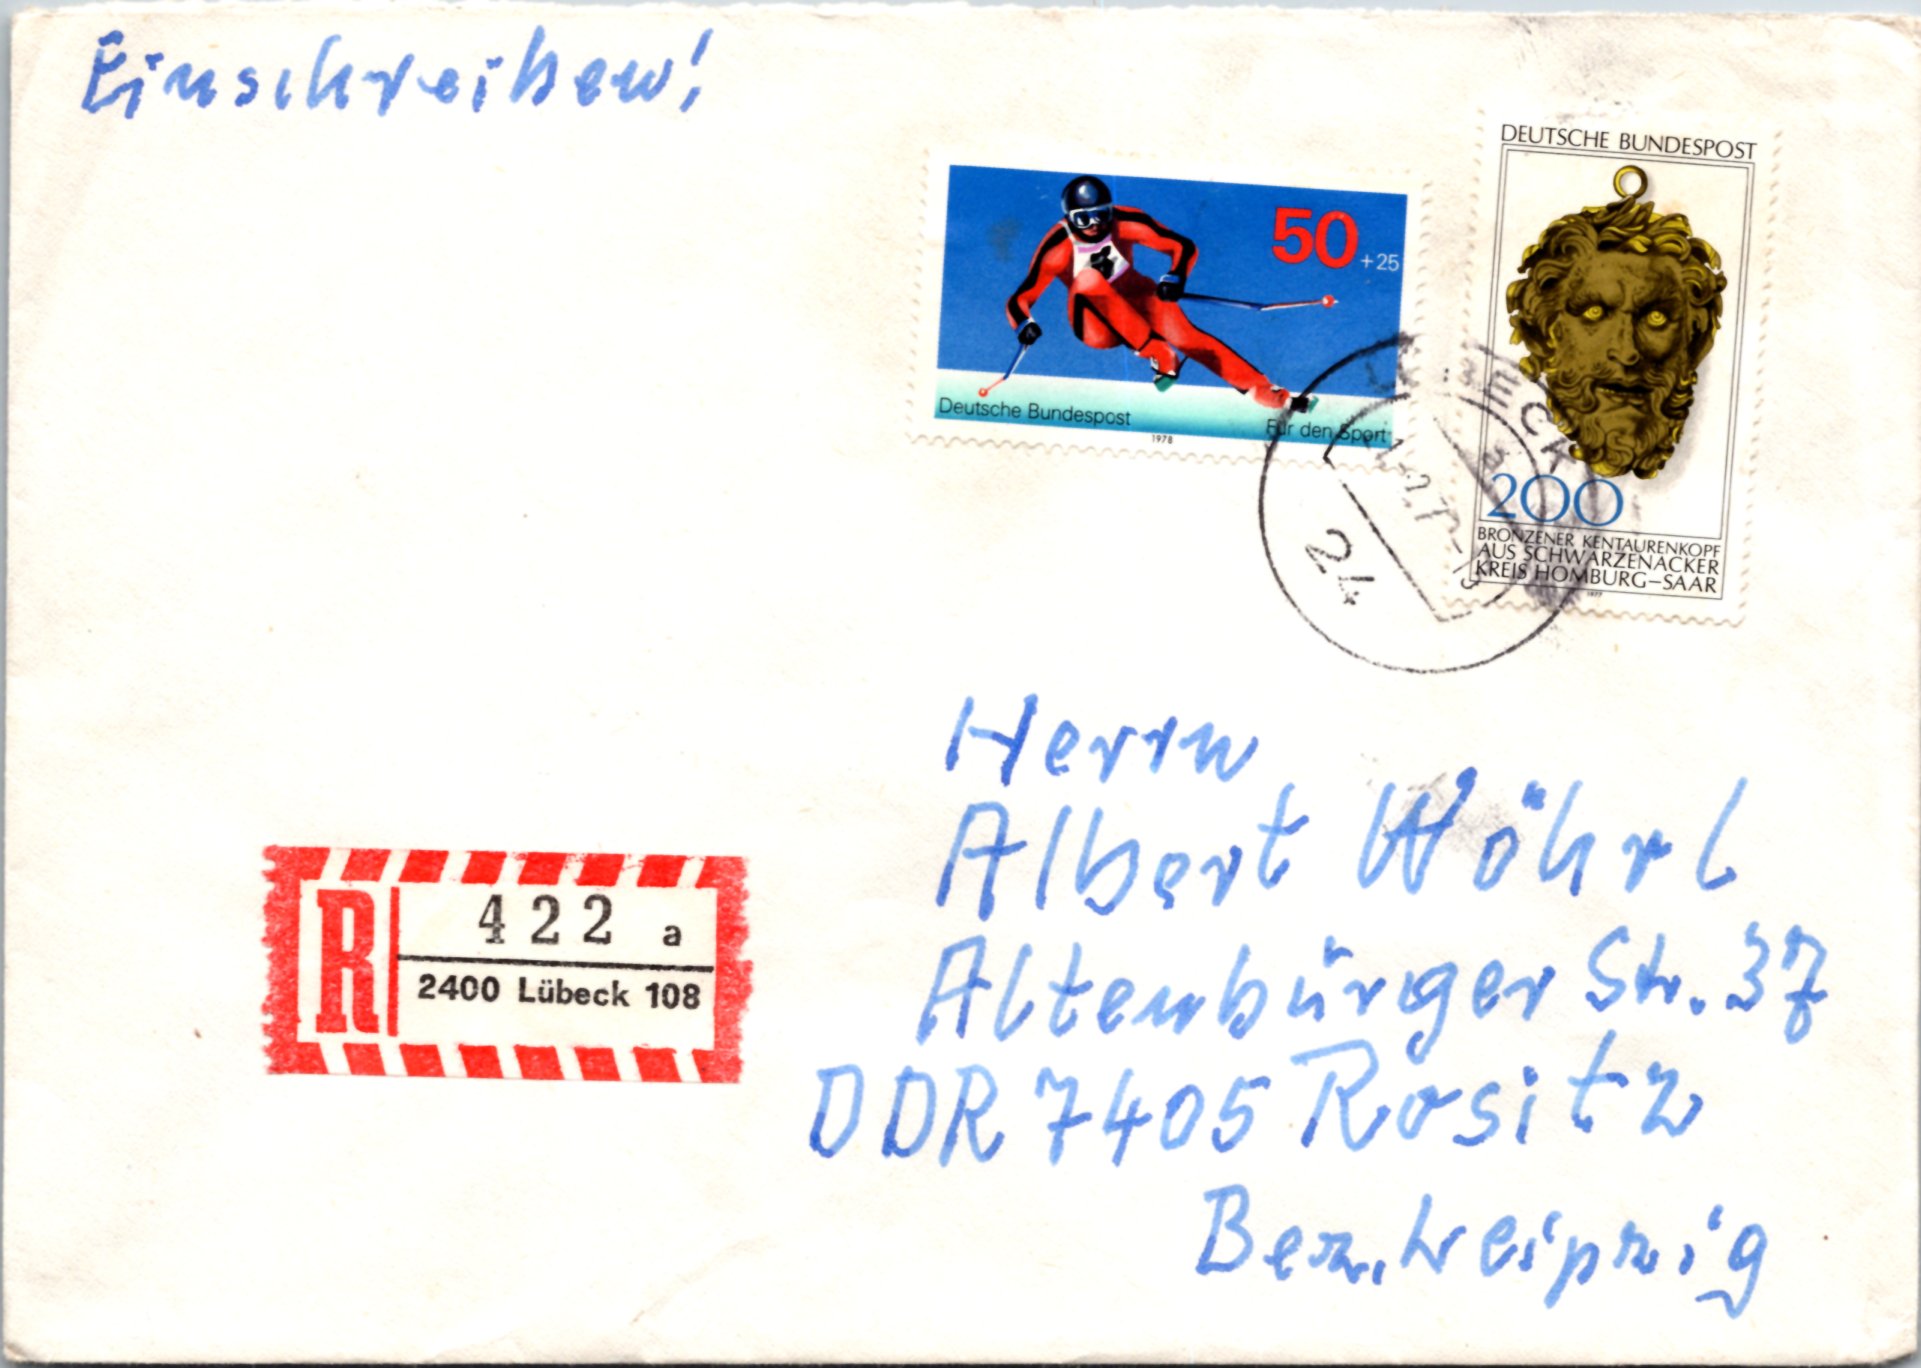 Einschreiben!
DEUTSCHE BUNDESPOST
50 +25
Deutsche Bundespost
Für den Sport
1978
200
BRONZENER KENTAURENKOPF
AUS SCHWARZENACKER
KREIS HOMBURG–SAAR
1977
LÜBECK
24
Herrn
Albert Wöhrl
Altenbürger Str. 37
DDR 7405 Rositz
Bez. Leipzig
R
422 a
2400 Lübeck 108